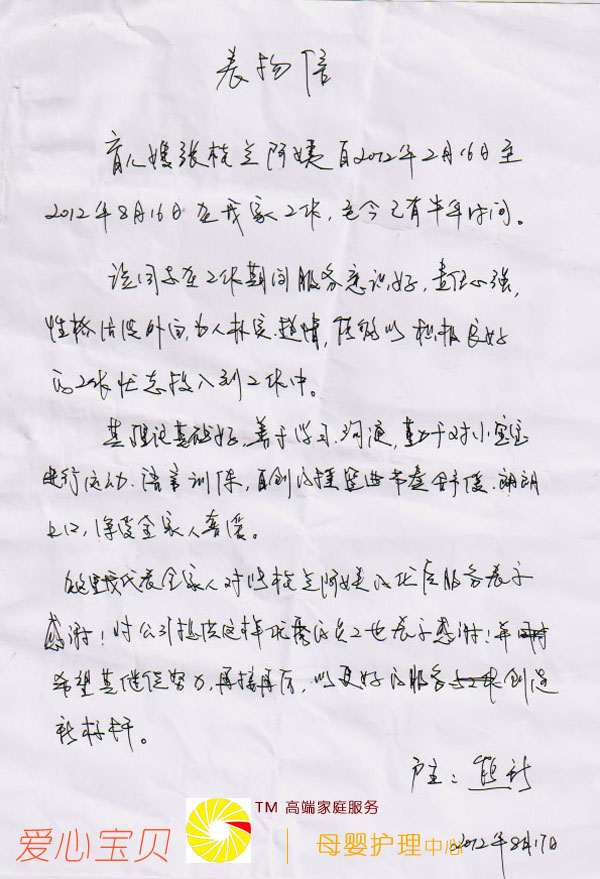 表扬信
育儿嫂张桂兰阿姨自2012年2月16日至
2012年8月16日在我家工作，至今已有半年时间。
该同志在工作期间服务意识好，责任心强，
性格活泼外向，为人朴实、热情，能够以积极良好
的工作状态投入到工作中。
其理论基础好，善于学习、沟通，勤于对小宝宝
进行运动、语言训练，自创的摇篮曲节奏舒缓、朗朗
上口，深受全家人喜爱。
在这里我代表全家人对张桂兰阿姨的优质服务表示
感谢！对公司提供这样优秀的员工也表示感谢！并
希望其继续努力，再接再厉，以更好的服务创造
新标杆。
户主：
2012年8月17日
TM 高端家庭服务
爱心宝贝
母婴护理中心